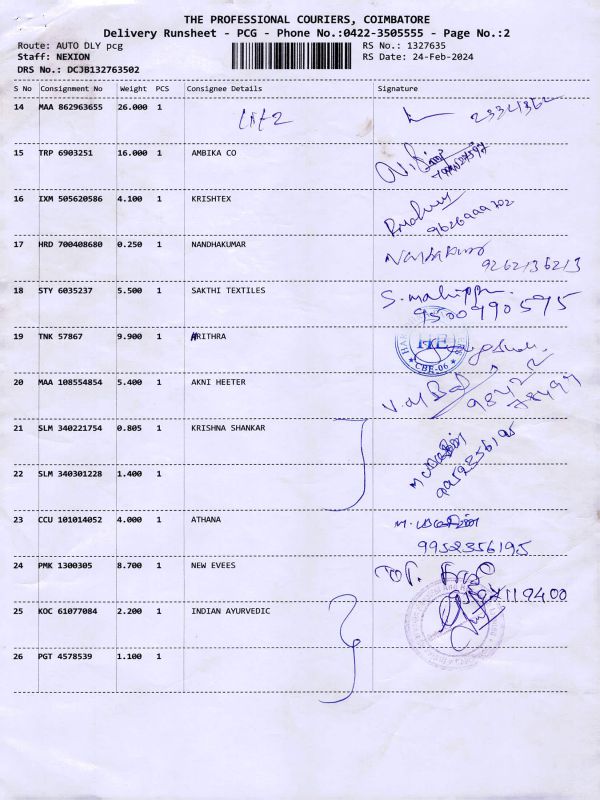 THE PROFESSIONAL COURIERS, COIMBATORE
Delivery Runsheet - PCG - Phone No.:0422-3505555 - Page No.:2
Route: AUTO DLY pcg RS No.: 1327635
Staff: NEXION RS Date: 24-Feb-2024
DRS No.: DCJB132763502
S No Consignment No Weight PCS Consignee Details Signature
14 MAA 862963655 26.000 1
15 TRP 6903251 16.000 1 AMBIKA CO
16 IXM 505620586 4.100 1 KRISHTEX
9626999702
17 HRD 700408680 0.250 1 NANDHAKUMAR
9262136213
18 STY 6035237 5.500 1 SAKTHI TEXTILES
9500990595
19 TNK 57867 9.900 1 HRITHRA
CBE-06
20 MAA 108554854 5.400 1 AKNI HEETER
21 SLM 340221754 0.805 1 KRISHNA SHANKAR
9952356195
22 SLM 340301228 1.400 1
23 CCU 101014052 4.000 1 ATHANA
9952356195
24 PMK 1300305 8.700 1 NEW EVEES
25 KOC 61077084 2.200 1 INDIAN AYURVEDIC
26 PGT 4578539 1.100 1